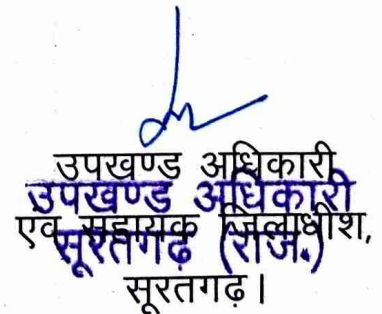 उपखण्ड अधिकारी
उपखण्ड अधिकारी
एवं सहायक जिलाधीश,
सूरतगढ़ (राज.)
सूरतगढ़।